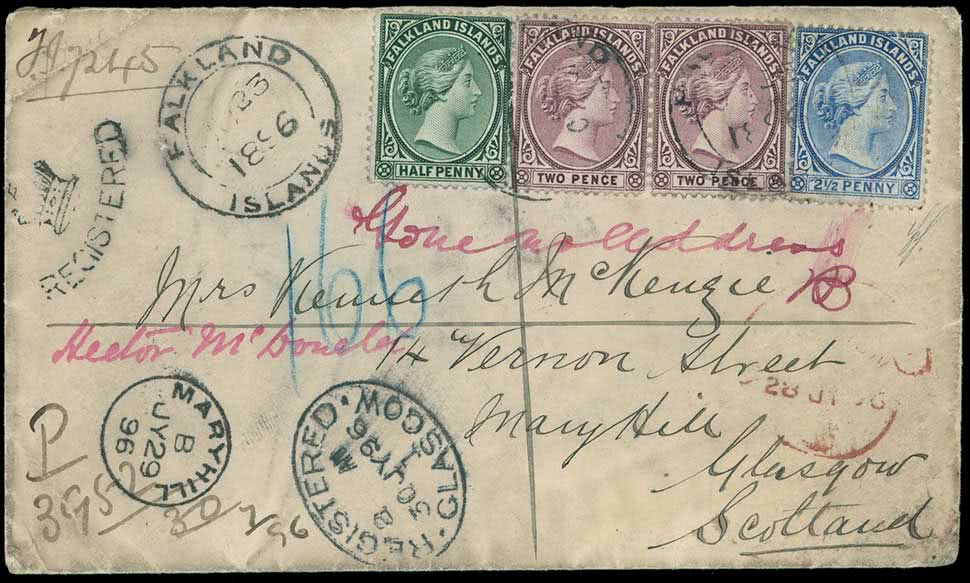 FALKLAND ISLANDS
HALF PENNY
FALKLAND ISLANDS
TWO PENCE
FALKLAND ISLANDS
TWO PENCE
FALKLAND ISLANDS
2½ PENNY
FALKLAND
ISLANDS
REGISTERED
166
Gone no Address
Mrs Kenneth McKenzie
Hector
14 Vernon Street
MaryHill
Glasgow
Scotland
MARYHILL
B
JY 29
96
REGISTERED · GLASGOW ·
30 JY 96
28 JY 96
P
395
30/7/96